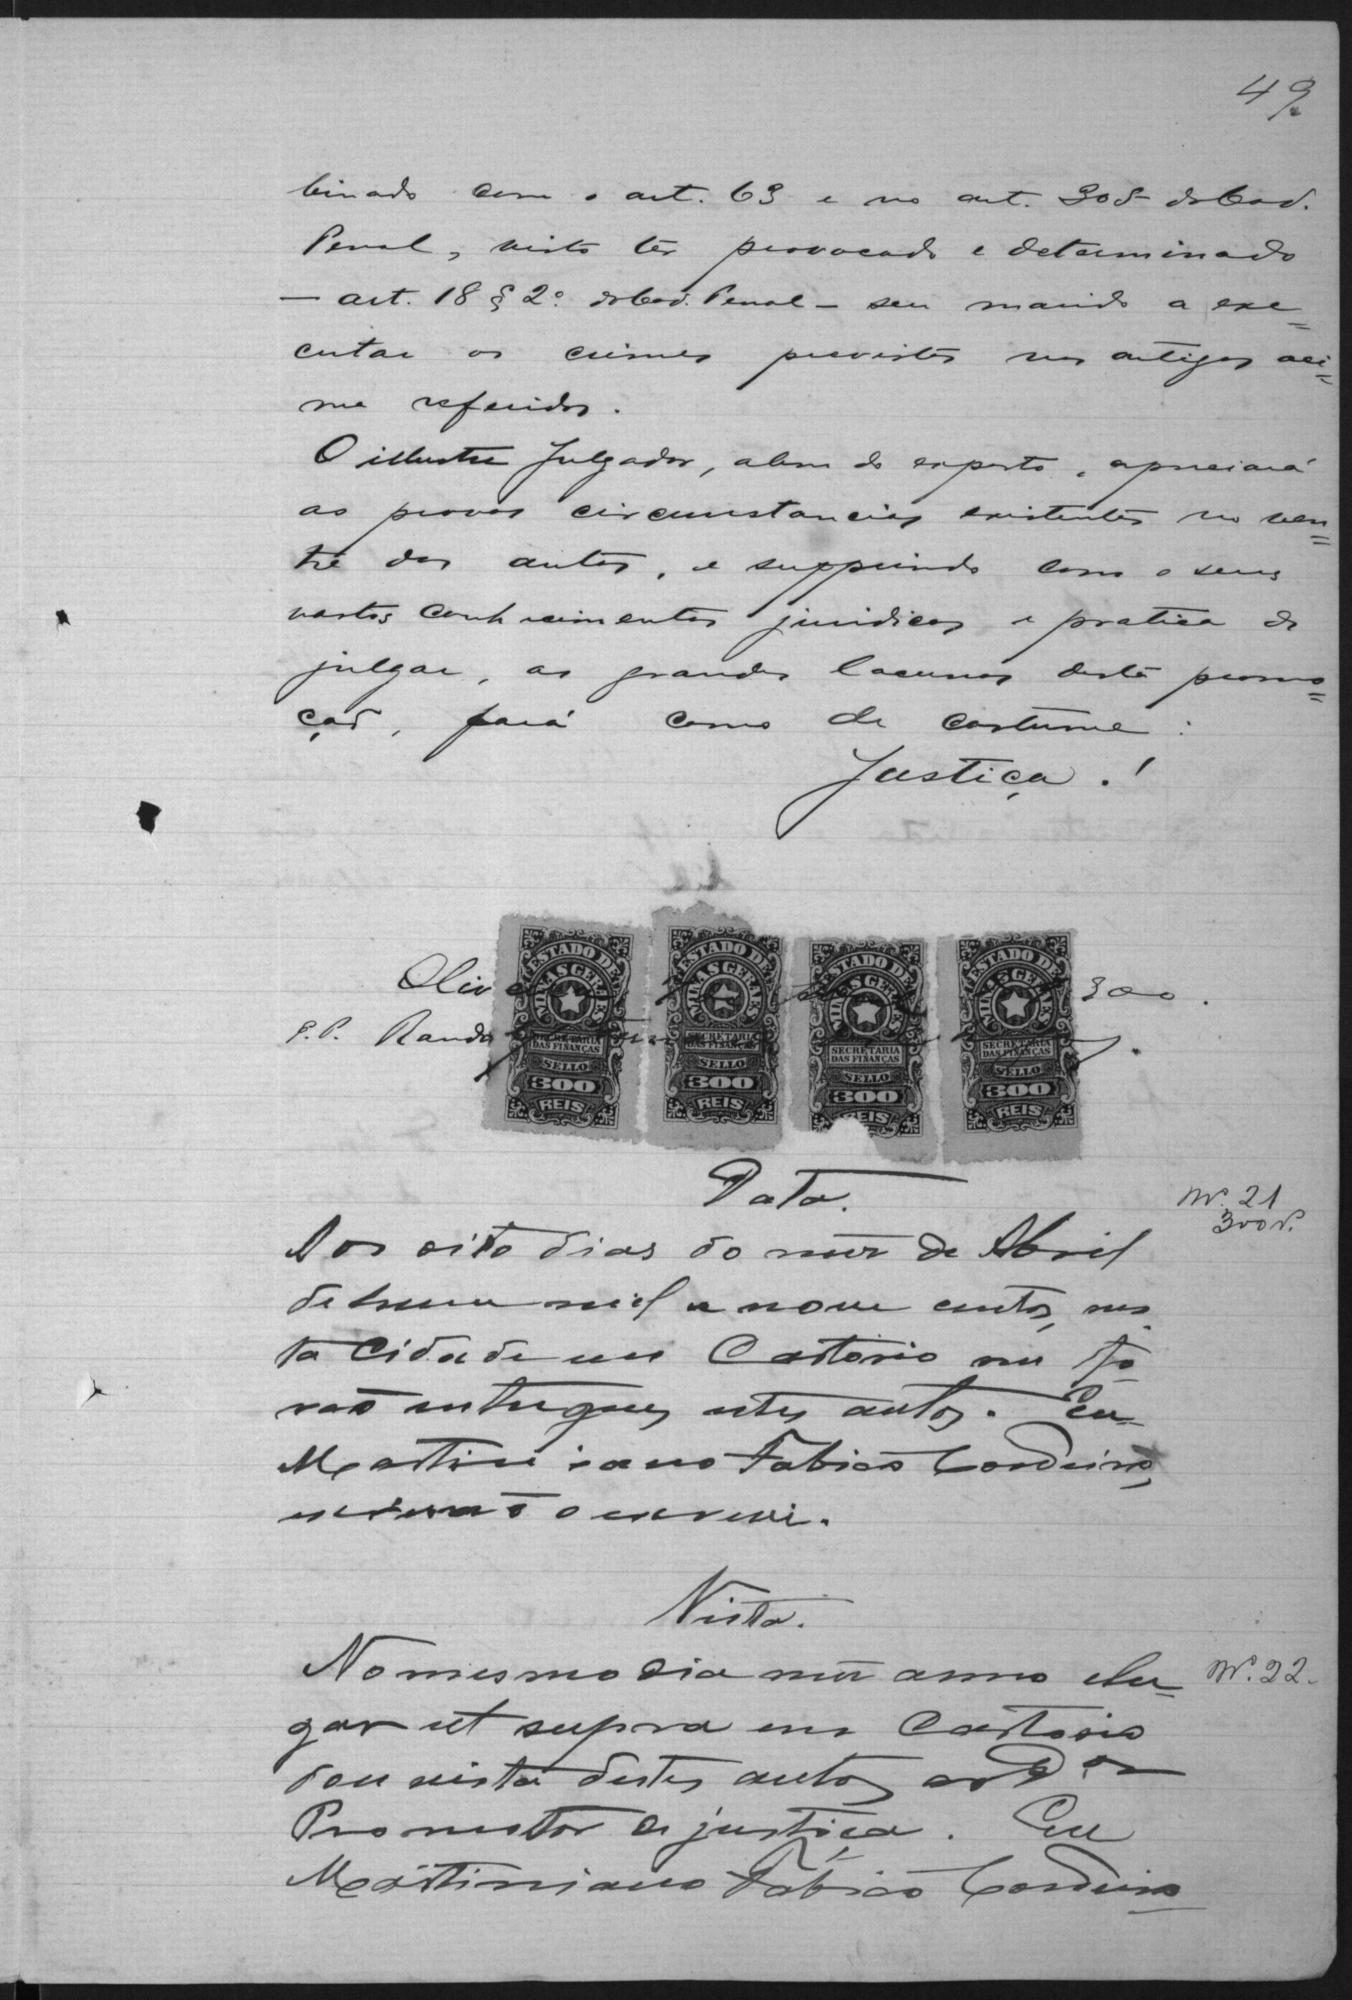 49
binado com o art. 63 e no art. 305 do Cod.
Penal, visto ter provocado e determinado
— art. 18 § 2º do Cod. Penal — seu marido a exe=
cutar os crimes previstos nos artigos aci=
ma referidos.
O illustre Julgador, alem do exposto, apreciará
as provas circumstancias existentes no ven=
tre dos autos, e supprindo com o seus
vastos conhecimentos juridicos e pratica de
julgar, as grandes lacunas desta promo=
ção, fará como de costume:
Justiça.!
Oliv 300.
P. P. Rando
ESTADO DE MINAS GERAES SECRETARIA DAS FINANÇAS SELLO 300 REIS
ESTADO DE MINAS GERAES SECRETARIA DAS FINANÇAS SELLO 300 REIS
ESTADO DE MINAS GERAES SECRETARIA DAS FINANÇAS SELLO 300 REIS
ESTADO DE MINAS GERAES SECRETARIA DAS FINANÇAS SELLO 300 REIS
Data.
Nº. 21
300 r.
Aos oito dias do mez de Abril
de hum mil e nove centos, nes-
ta Cidade em Cartorio me fo-
rão entregues estes autos. Eu
Martiniano Fabião Cordeiro,
escrivão o escrevi.
Vista.
No mesmo dia mez anno e lu- Nº. 22.
gar ut supra em Cartorio
dou vista destes autos ao Dor
Promotor de justiça. Eu
Martiniano Fabião Cordeiro